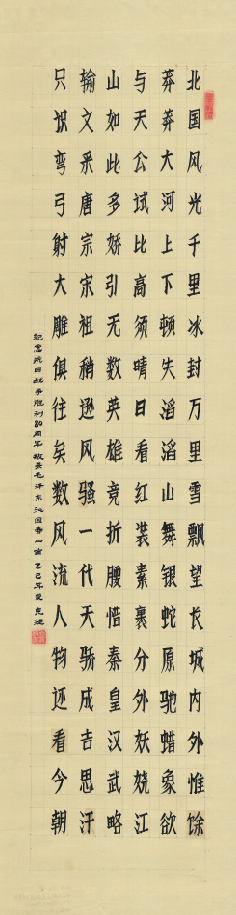 北国风光千里冰封万里雪飘望长城内外惟馀
莽莽大河上下顿失滔滔山舞银蛇原驰蜡象欲
与天公试比高须晴日看红装素裹分外妖娆江
山如此多娇引无数英雄竞折腰惜秦皇汉武略
输文采唐宗宋祖稍逊风骚一代天骄成吉思汗
只识弯弓射大雕俱往矣数风流人物还看今朝
纪念抗日战争胜利80周年敬录毛泽东沁园春一首乙巳年夏